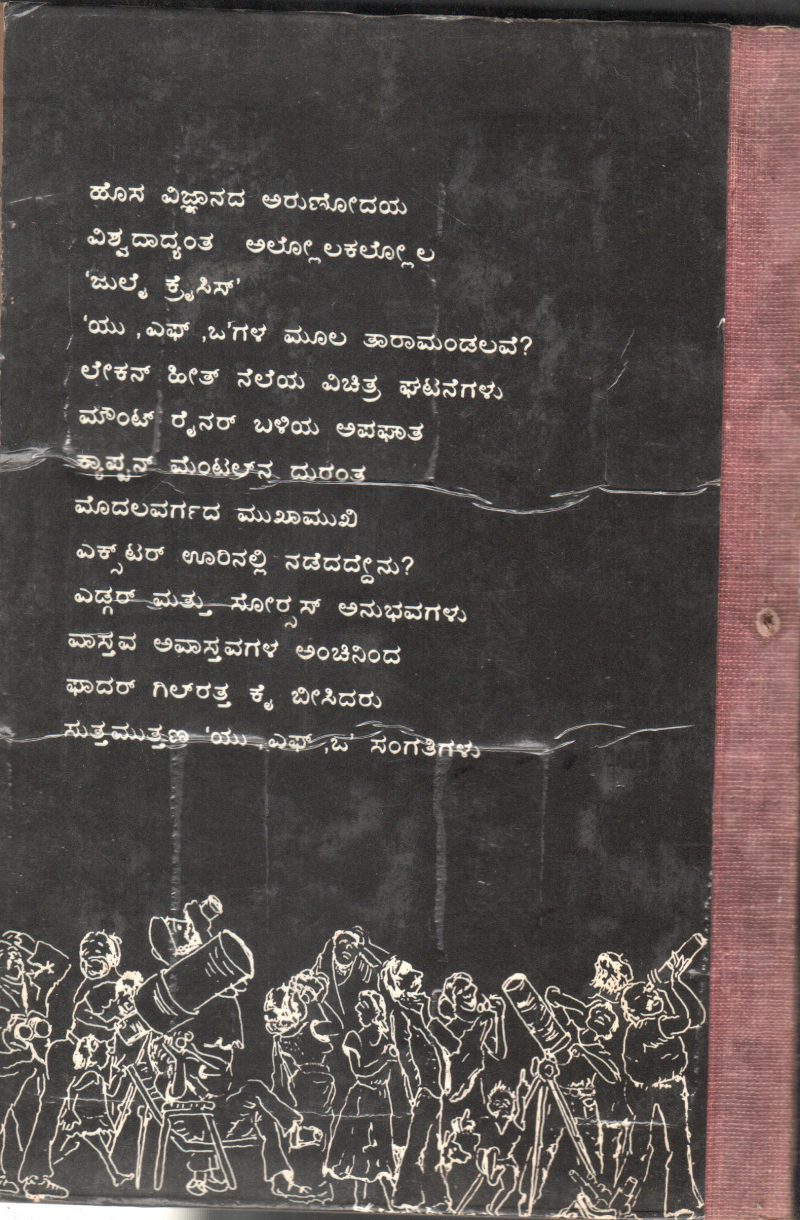 ಹೊಸ ವಿಜ್ಞಾನದ ಅರುಣೋದಯ
ವಿಶ್ವದಾದ್ಯಂತ ಅಲ್ಲೋಲಕಲ್ಲೋಲ
'ಜುಲೈ ಕ್ರೈಸಿಸ್'
'ಯು ,ಎಫ್ ,ಒ'ಗಳ ಮೂಲ ತಾರಾಮಂಡಲವೆ?
ಲೇಕನ್ ಹೀತ್ ನೆಲೆಯ ವಿಚಿತ್ರ ಘಟನೆಗಳು
ಮೌಂಟ್ ರೈನರ್ ಬಳಿಯ ಅಪಘಾತ
ಕ್ಯಾಪ್ಟನ್ ಮೆಂಟಲ್‌ನ ದುರಂತ
ಮೊದಲವರ್ಗದ ಮುಖಾಮುಖಿ
ಎಕ್ಸ್‌ಟರ್ ಊರಿನಲ್ಲಿ ನಡೆದದ್ದೇನು?
ಎಡ್ಗರ್ ಮತ್ತು ಸೋರ್‍ಸಸ್ ಅನುಭವಗಳು
ವಾಸ್ತವ ಅವಾಸ್ತವಗಳ ಅಂಚಿನಿಂದ
ಫಾದರ್ ಗಿಲ್‌ರತ್ತ ಕೈ ಬೀಸಿದರು
ಸುತ್ತಮುತ್ತಣ 'ಯು ,ಎಫ್ ,ಒ' ಸಂಗತಿಗಳು